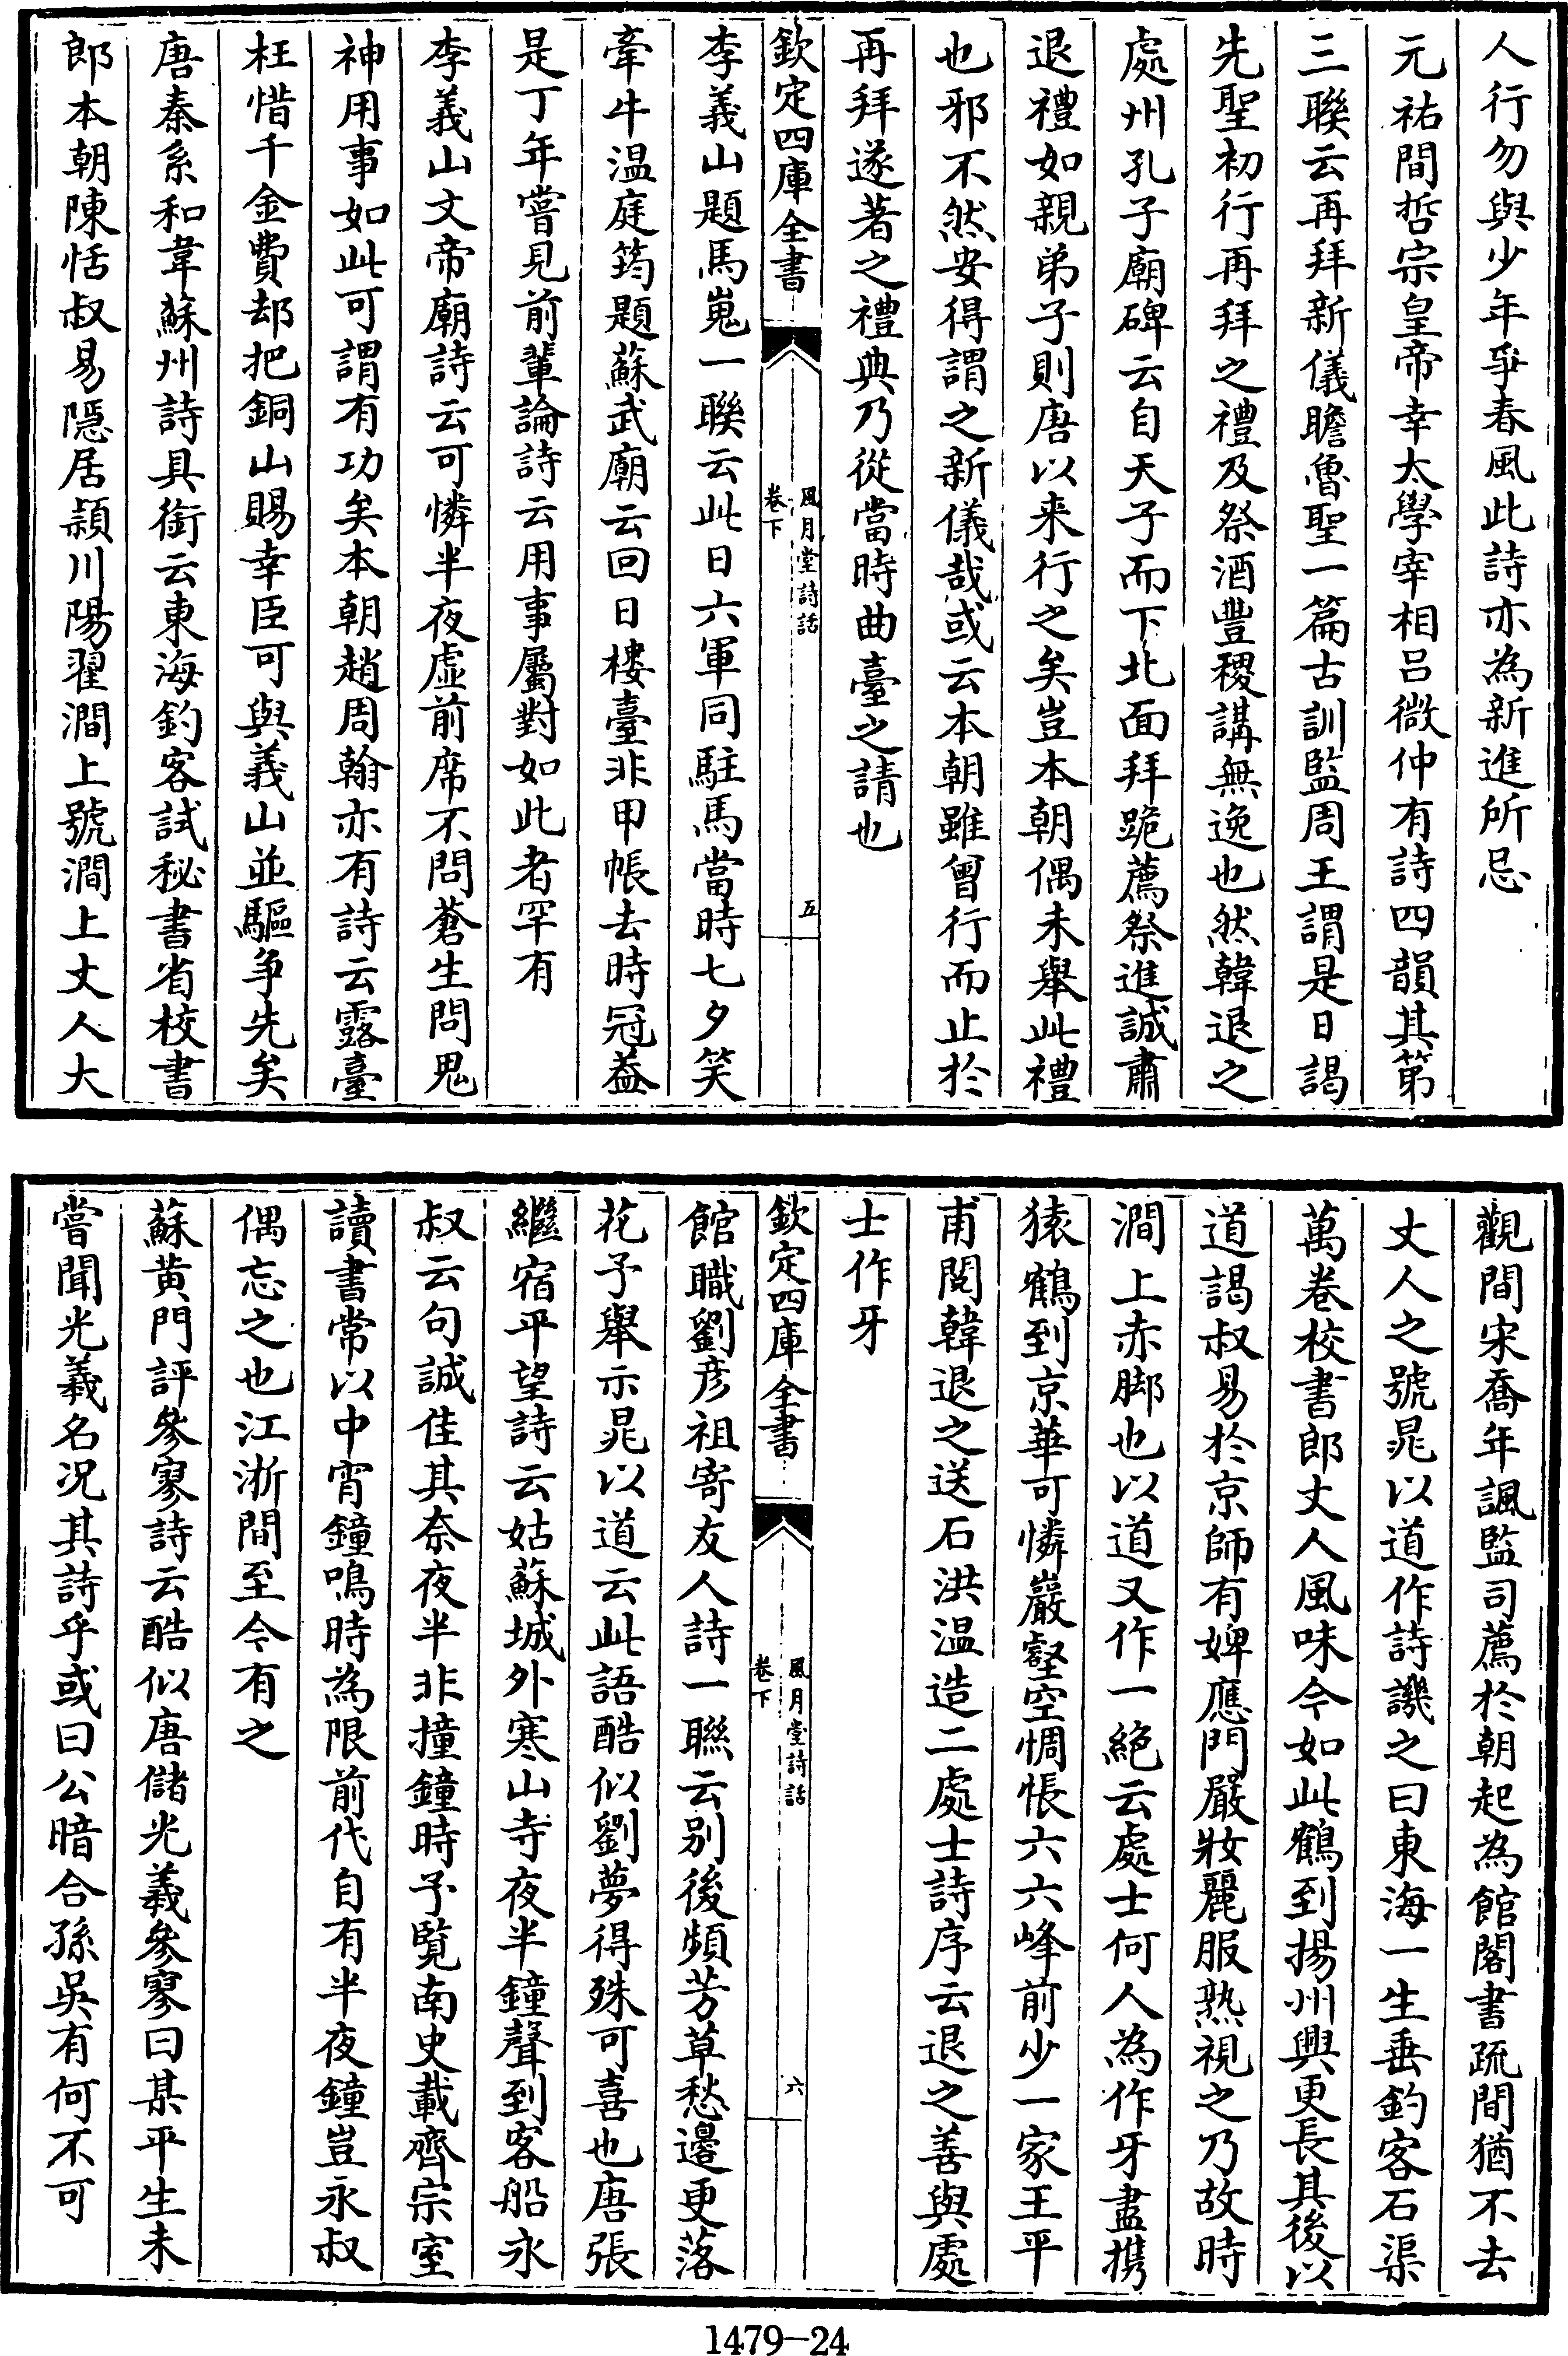 人行勿與少年爭春風此詩亦為新進所忌
元祐間哲宗皇帝幸太學宰相呂微仲有詩四韻其第
三聯云再拜新儀瞻魯聖一篇古訓監周王謂是日謁
先聖初行再拜之禮及祭酒豐稷講無逸也然韓退之
處州孔子廟碑云自天子而下北面拜跪薦祭進誠肅
退禮如親弟子則唐以来行之矣豈本朝偶未舉此禮
也邪不然安得謂之新儀哉或云本朝雖曾行而止於
再拜遂著之禮典乃從當時曲臺之請也
欽定四庫全書
風月堂詩話
卷下
五
李義山題馬嵬一聯云此日六軍同駐馬當時七夕笑
牽牛温庭筠題蘇武廟云回日樓臺非甲帳去時冠葢
是丁年嘗見前輩論詩云用事屬對如此者罕有
李義山文帝廟詩云可憐半夜虛前席不問蒼生問鬼
神用事如此可謂有功矣本朝趙周翰亦有詩云露臺
枉惜千金費却把銅山賜幸臣可與義山並驅争先矣
唐秦系和韋蘇州詩具銜云東海釣客試秘書省校書
郎本朝陳恬叔易隱居潁川陽翟澗上號澗上丈人大
觀間宋喬年諷監司薦於朝起為館閣書疏間猶不去
丈人之號晁以道作詩譏之曰東海一生垂釣客石渠
萬卷校書郎丈人風味今如此鶴到揚州興更長其後以
道謁叔易於京師有婢應門嚴妝麗服熟視之乃故時
澗上赤脚也以道又作一絶云處士何人為作牙盡携
猿鶴到京華可憐巖壑空惆悵六六峰前少一家王平
甫閲韓退之送石洪温造二處士詩序云退之善與處
士作牙
欽定四庫全書
風月堂詩話
卷下
六
館職劉彦祖寄友人詩一聯云别後頻芳草愁邊更落
花予舉示晁以道云此語酷似劉夢得殊可喜也唐張
繼宿平望詩云姑蘇城外寒山寺夜半鐘聲到客船永
叔云句誠佳其奈夜半非撞鐘時予覽南史載齊宗室
讀書常以中宵鐘鳴時為限前代自有半夜鐘豈永叔
偶忘之也江淅間至今有之
蘇黄門評參寥詩云酷似唐儲光羲參寥曰某平生未
嘗聞光羲名况其詩乎或曰公暗合孫吳有何不可
1479-24